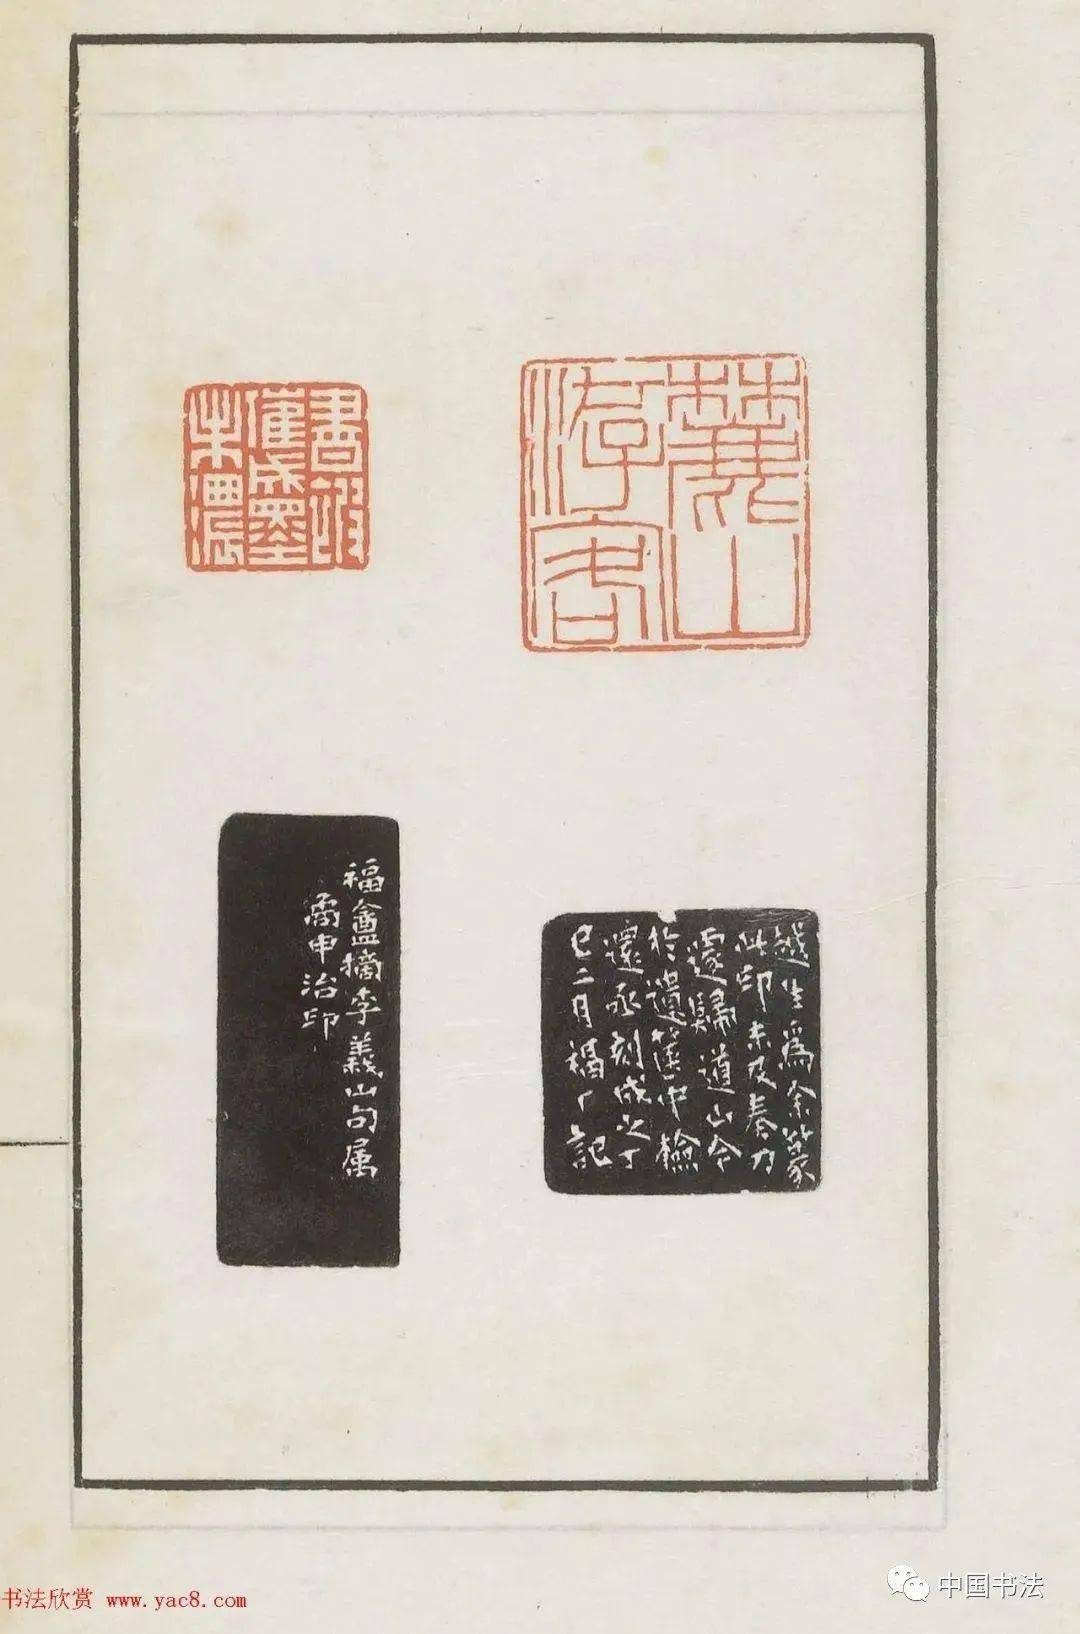 麓山
游客
書被
催成墨
未濃
越生為余篆
此印未及奏刀
遽歸道山今
於遺篋中檢
還亟刻成之丁
巳二月福厂記
福盦摘李義山句属
矞申治印
书法欣赏 www.yac8.com
中国书法